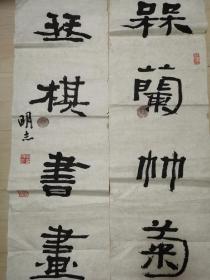 槑蘭竹菊
琴棋書畫
明志